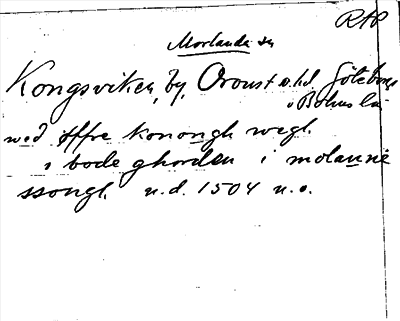 RAP
Morlanda sn
Kongsviken, by, Oroust v. hd, Göteborgs
o Bohus län
wed öffre konongh wegh
i bode ghorden i molanne
ssongh n.d. 1504 n.o.